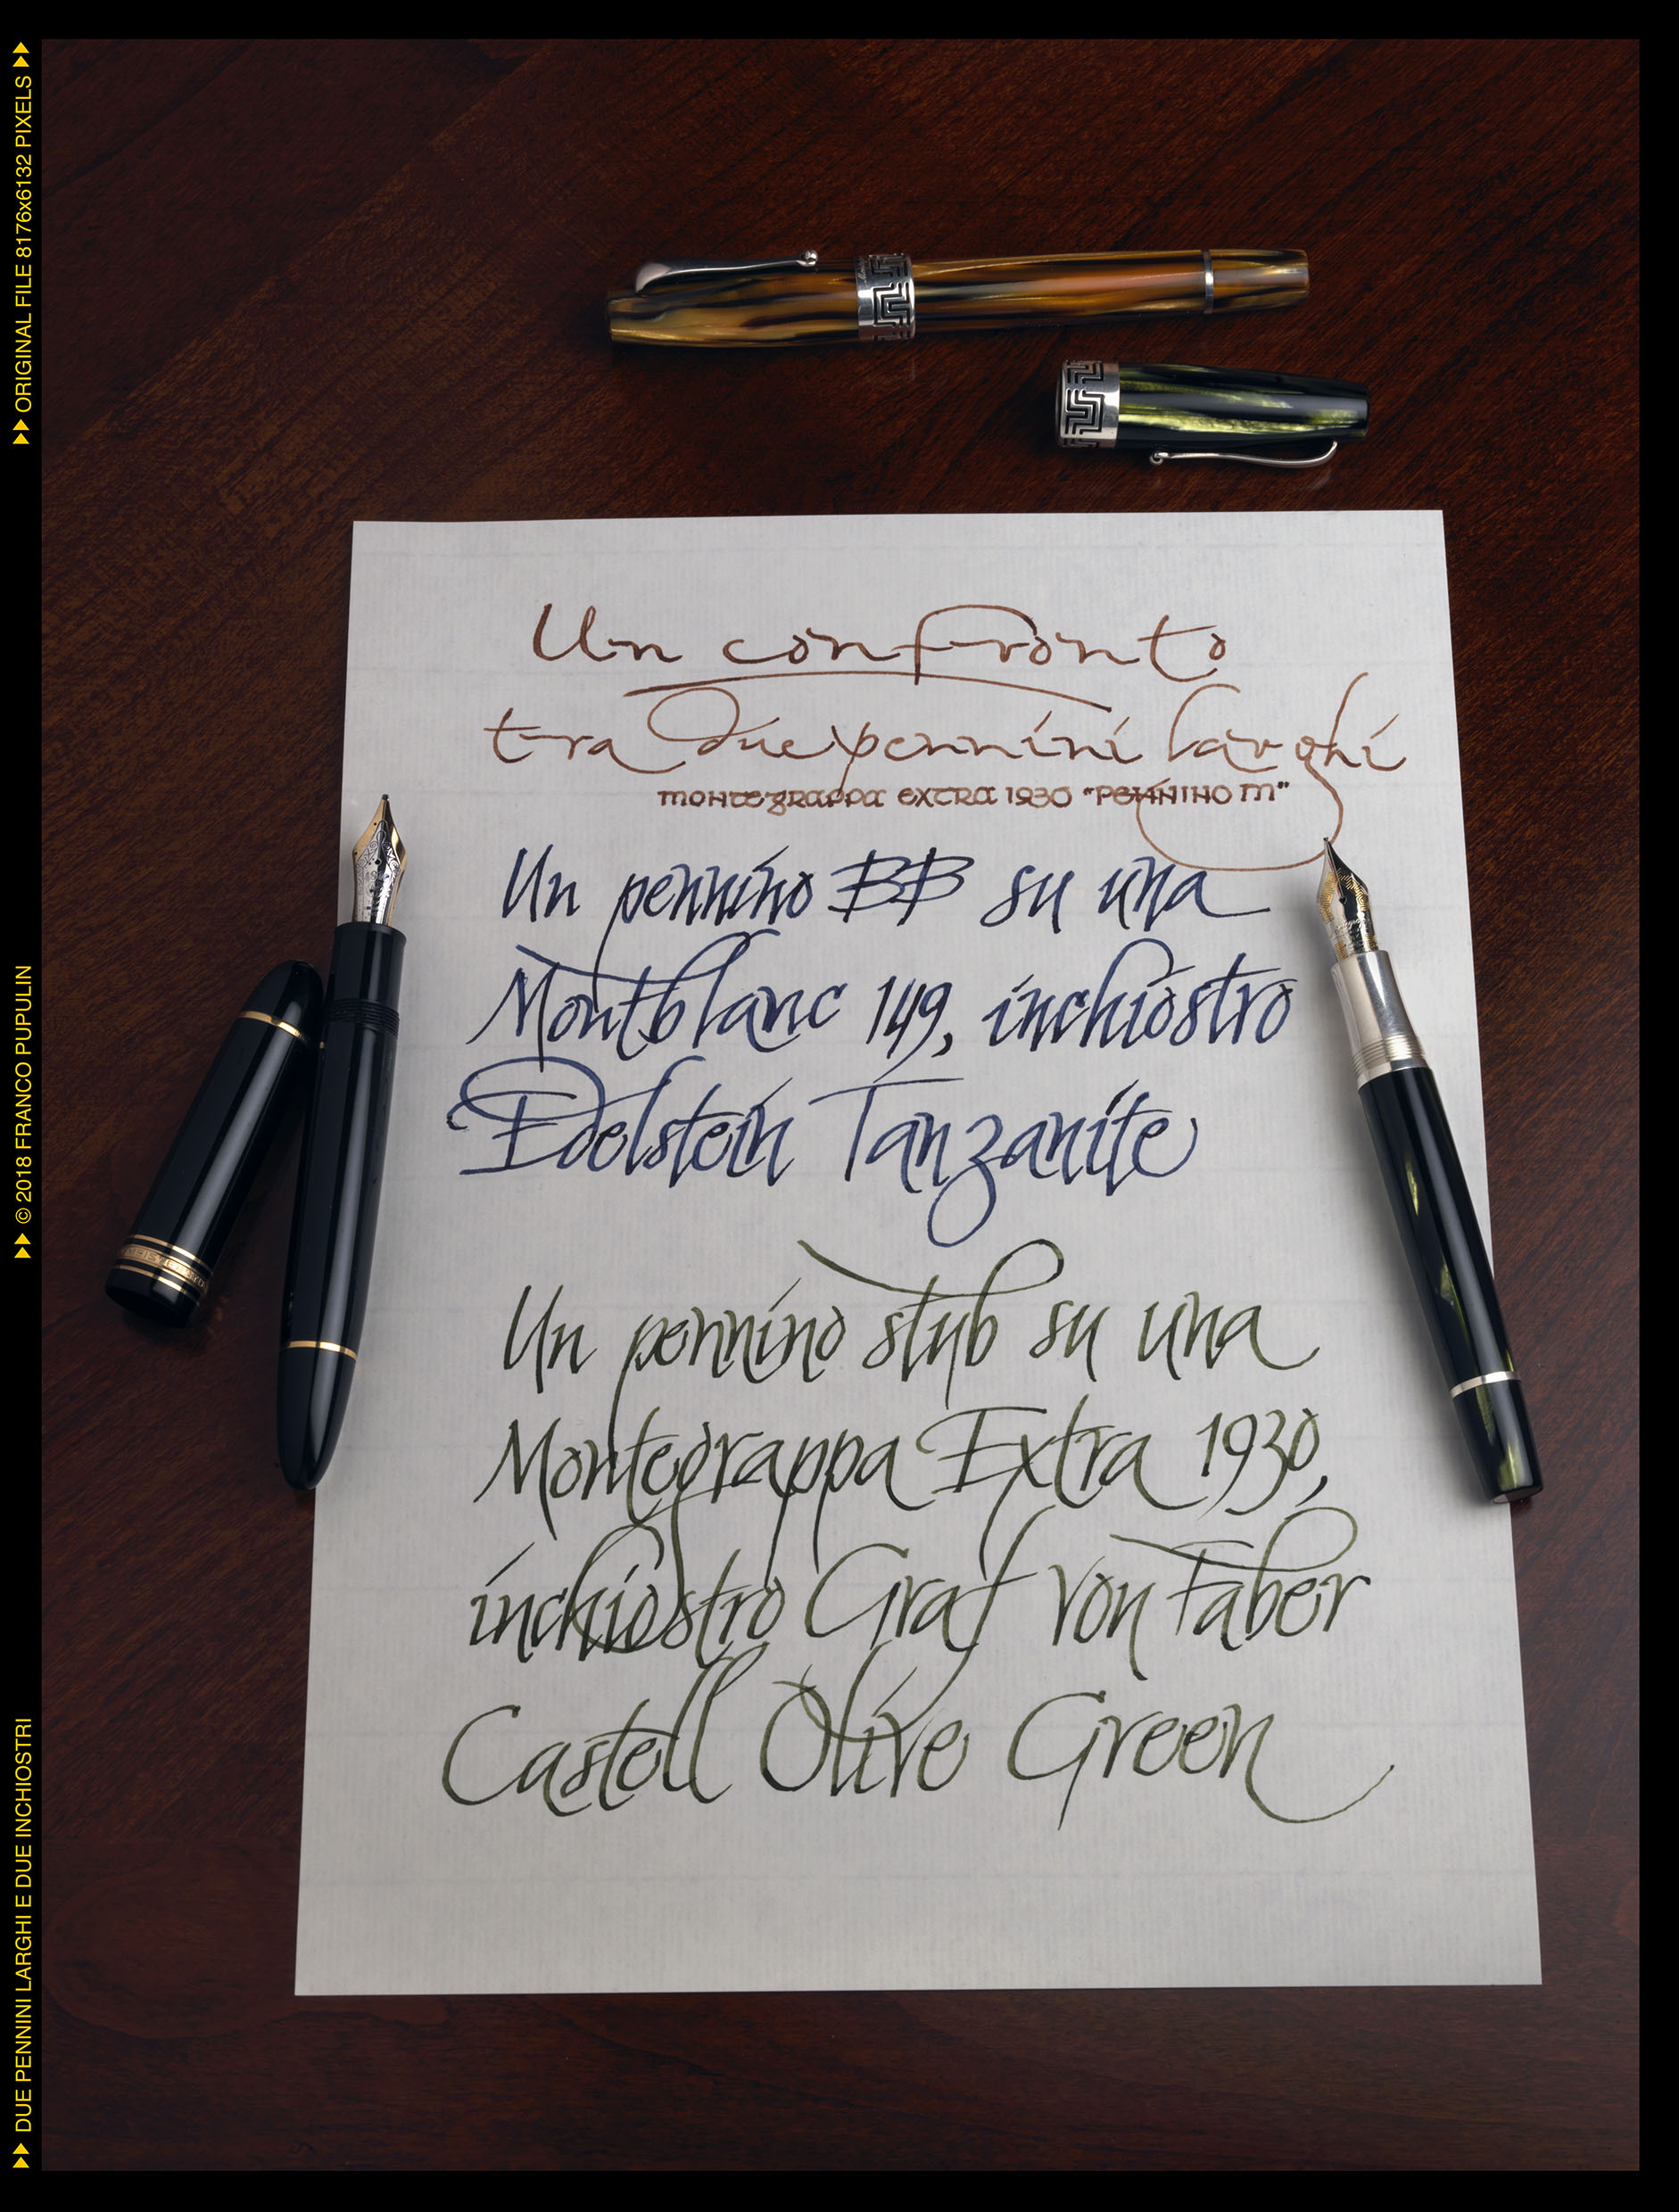 Un confronto
tra due pennini larghi
montegrappa extra 1930 "pennino m"
Un pennino BB su una
Montblanc 149, inchiostro
Edelstein Tanzanite
Un pennino stub su una
Montegrappa Extra 1930,
inchiostro Graf von Faber
Castell Olive Green
ORIGINAL FILE 8176x6132 PIXELS
© 2018 FRANCO PUPULIN
DUE PENNINI LARGHI E DUE INCHIOSTRI